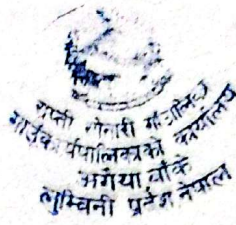 राप्ती सोनारी गाउँपालिका
गाउँ कार्यपालिकाको कार्यालय
भगैया बाँके
लुम्बिनी प्रदेश नेपाल